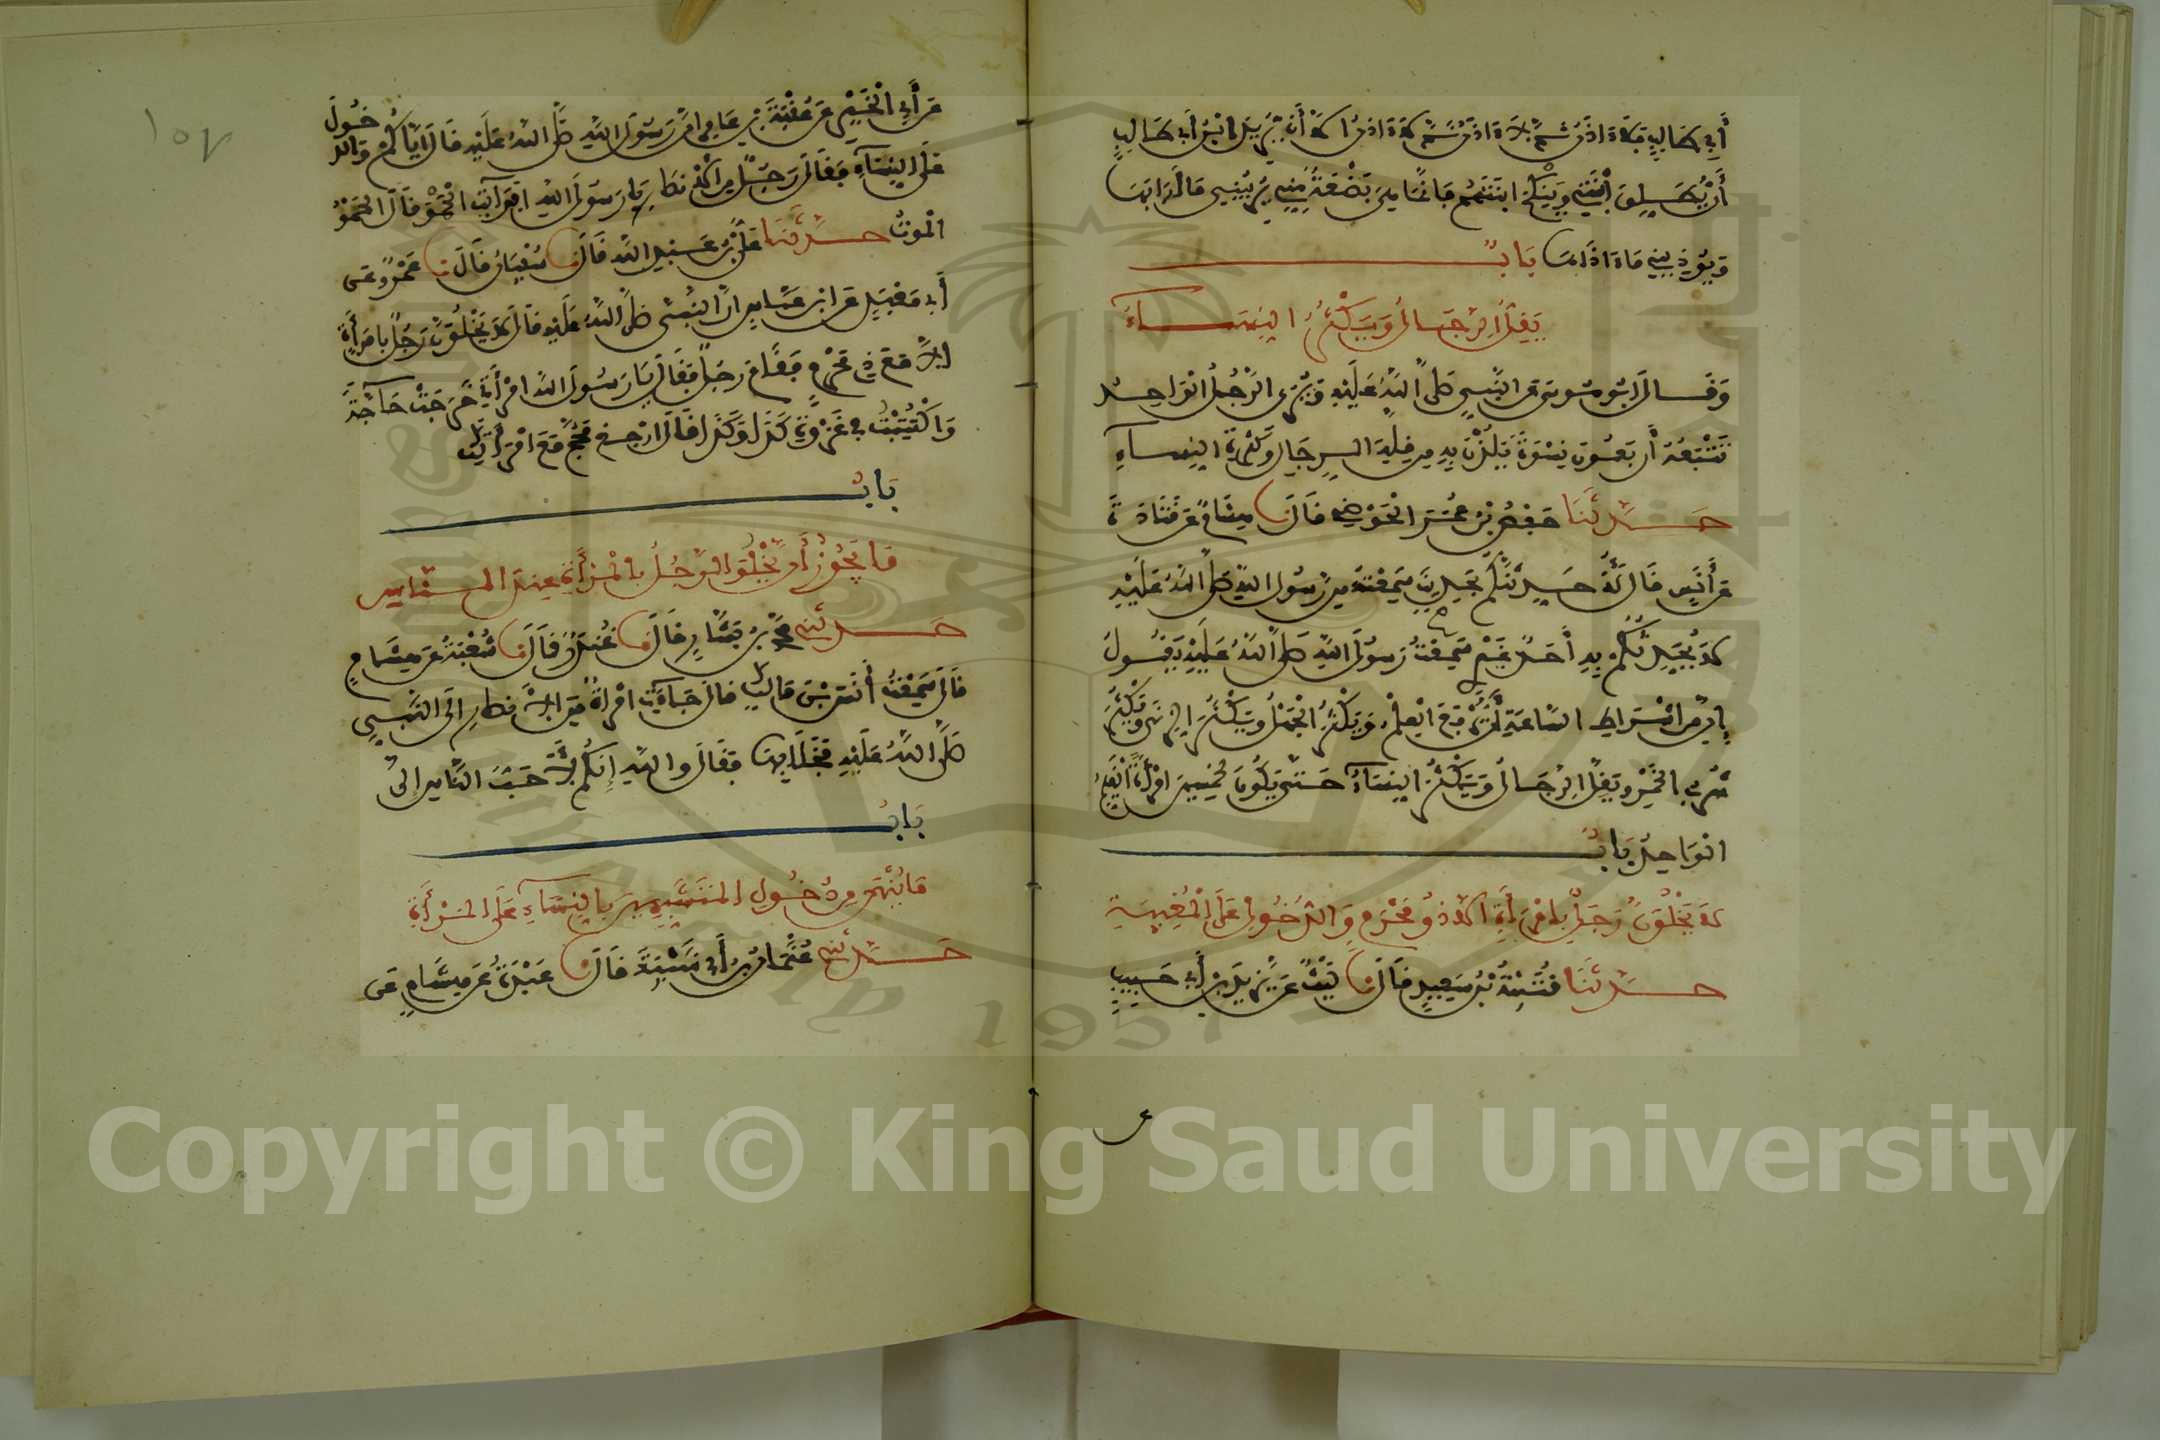 أَبِي طَالِبٍ فَلَا ءَاذَنُ ثُمَّ لَا ءَاذَنُ ثُمَّ لَا ءَاذَنُ الَّا أَنْ يُّرِيدَ ابْنُ أَبِي طَالِبٍ
أَنْ يُّطَلِّقَ ابْنَتِي وَيَنْكِحَ ابْنَتَهُمْ فَإنَّمَا هِيَ بَضْعَةٌ مِّنِّي يُرِيبُنِي مَا أَرَابَهَا
وَيُوذِينِي مَا ءَاذَاهَا بَابُ
يَقِلُّ الرِّجَالُ وَيَكْثُرُ النِّسَاءُ
وَقَالَ أَبُو مُوسَى عَنِ النَّبِيِّ صَلَّى اللهُ عَلَيْهِ وَيُرَى الرَّجُلُ الْوَاحِدُ
تَتْبَعُهُ أَرْبَعُونَ نِسْوَةً يَلُذْنَ بِهِ مِن قِلَّةِ الرِّجَالِ وَكَثْرَةِ النِّسَاءِ
حَدَّثَنَا حَفْصُ بْنُ عُمَرَ الْحَوْضِي قَالَ نا هِشَامٌ عَن قَتَادَةَ
عَن أَنَسٍ قَالَ لَأُحَدِّثَنَّكُمْ بِحَدِيثٍ سَمِعْتُهُ مِن رَّسُولِ اللهِ صَلَّى اللهُ عَلَيْهِ
لَا يُحَدِّثُكُمْ بِهِ أَحَدٌ غَيْرِي سَمِعْتُ رَسُولَ اللهِ صَلَّى اللهُ عَلَيْهِ يَقُولُ
إِنَّ مِنَ اشْرَاطِ السَّاعَةِ أَنْ يُّرْفَعَ الْعِلْمُ وَيَكْثُرَ الْجَهْلُ وَيَكْثُرَ الزِّنَى وَيَكْثُرَ
شُرْبُ الْخَمْرِ وَيَقِلَّ الرِّجَالُ وَيَكْثُرَ النِّسَاءُ حَتَّى يَكُونَ لِخَمْسِينَ امْرَأَةً الْقَيِّمُ
الْوَاحِدُ بَابُ
لَا يَخْلُوَنَّ رَجُلٌ بِامْرَأَةٍ الَّا ذُو مَحْرَمٍ وَالدُّخُولِ عَلَى الْمُغِيبَةِ
حَدَّثَنَا قُتَيْبَةُ بْنُ سَعِيدٍ قَالَ نا لَيْثٌ عَن يَّزِيدَ بْنِ أَبِي حَبِيبٍ
عن
١٥٧
عَن أَبِي الْخَيْرِ عَن عُقْبَةَ بْنِ عَامِرٍ انَّ رَسُولَ اللهِ صَلَّى اللهُ عَلَيْهِ قَالَ إيَّاكُمْ وَالدُّخُولَ
عَلَى النِّسَاءِ فَقَالَ رَجُلٌ مِّنَ الْأَنصَارِ يَا رَسُولَ اللهِ أَفَرَأَيْتَ الْحَمْوَ قَالَ الْحَمْوُ
الْمَوْتُ حَدَّثَنَا عَلِيُّ بْنُ عَبْدِ اللهِ قَالَ نا سُفْيَانُ قَالَ نا عَمْرٌو عَن
أَبِي مَعْبَدٍ عَن ابْنِ عَبَّاسٍ انَّ النَّبِيَّ صَلَّى اللهُ عَلَيْهِ قَالَ لَا يَخْلُوَنَّ رَجُلٌ بِامْرَأَةٍ
الَّا مَعَ ذِي مَحْرَمٍ فَقَامَ رَجُلٌ فَقَالَ يَا رَسُولَ اللهِ امْرَأَتِي خَرَجَتْ حَاجَّةً
وَاكْتُتِبْتُ فِي غَزْوَةِ كَذَا وَكَذَا قَالَ ارْجِعْ فَحُجَّ مَعَ امْرَأَتِكَ
بَابُ
مَا يَجُوزُ أَن يَّخْلُوَ الرَّجُلُ بِالْمَرْأَةِ عِندَ النَّاسِ
حَدَّثَنِي مُحَمَّدُ بْنُ بَشَّارٍ قَالَ نا غُندَرٌ قَالَ نا شُعْبَةُ عَن هِشَامٍ
قَالَ سَمِعْتُ أَنَسَ بْنَ مَالِكٍ قَالَ جَاءَتِ امْرَأَةٌ مِّنَ الْأَنصَارِ إلَى النَّبِيِّ
صَلَّى اللهُ عَلَيْهِ فَخَلَا بِهَا فَقَالَ وَاللهِ إِنَّكُمْ لَأَحَبُّ النَّاسِ إلَيَّ
بَابُ
مَا يُنْهَى مِن دُخُولِ الْمُتَشَبِّهِينَ بِالنِّسَاءِ عَلَى الْمَرْأَةِ
حَدَّثَنِي عُثْمَانُ بْنُ أَبِي شَيْبَةَ قَالَ نا عَبْدَةُ عَن هِشَامٍ عَن
Copyright © King Saud University
1957